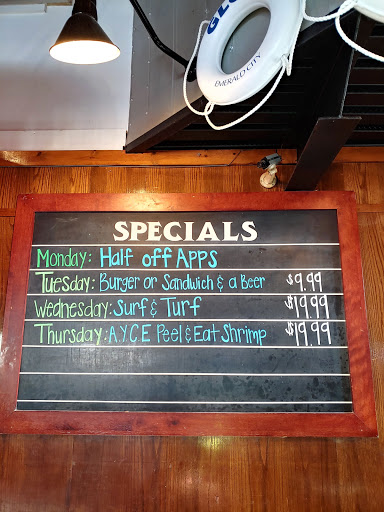 GLO
EMERALD CITY
SPECIALS
Monday: Half off Apps
Tuesday: Burger or Sandwich & a Beer $9.99
Wednesday: Surf & Turf $19.99
Thursday: A.Y.C.E Peel & Eat Shrimp $19.99